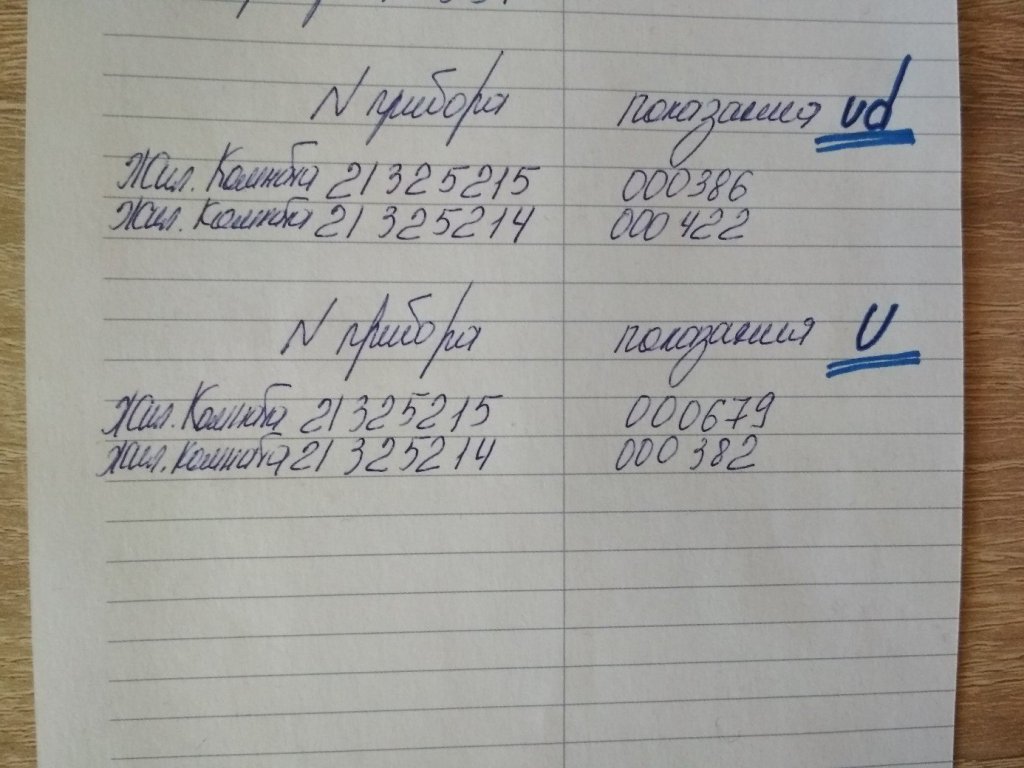 N прибора показания ud
Жил. Комната 21325215 000386
Жил. Комната 21 325214 000 422
N прибора показания U
Жил. Комната 21325215 000679
Жил. Комната 21 325214 000 382